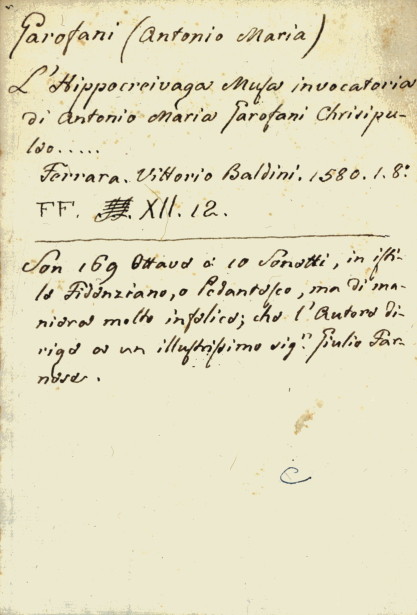 Garofani (Antonio Maria)
L'Hippocreivaga Musa invocatoria
di Antonio Maria Garofani Chrisipu-
lso.....
Ferrara. Vittorio Baldini. 1580. 1. 8.º
FF. XII. 12.
Son 169 Ottave e 10 Sonetti, in isti-
le Fidenziano, o Pedantesco, ma di ma-
niera molto infelice; che l'Autore di-
rige a un illustrissimo sig.r Giulio Far-
nese.
C